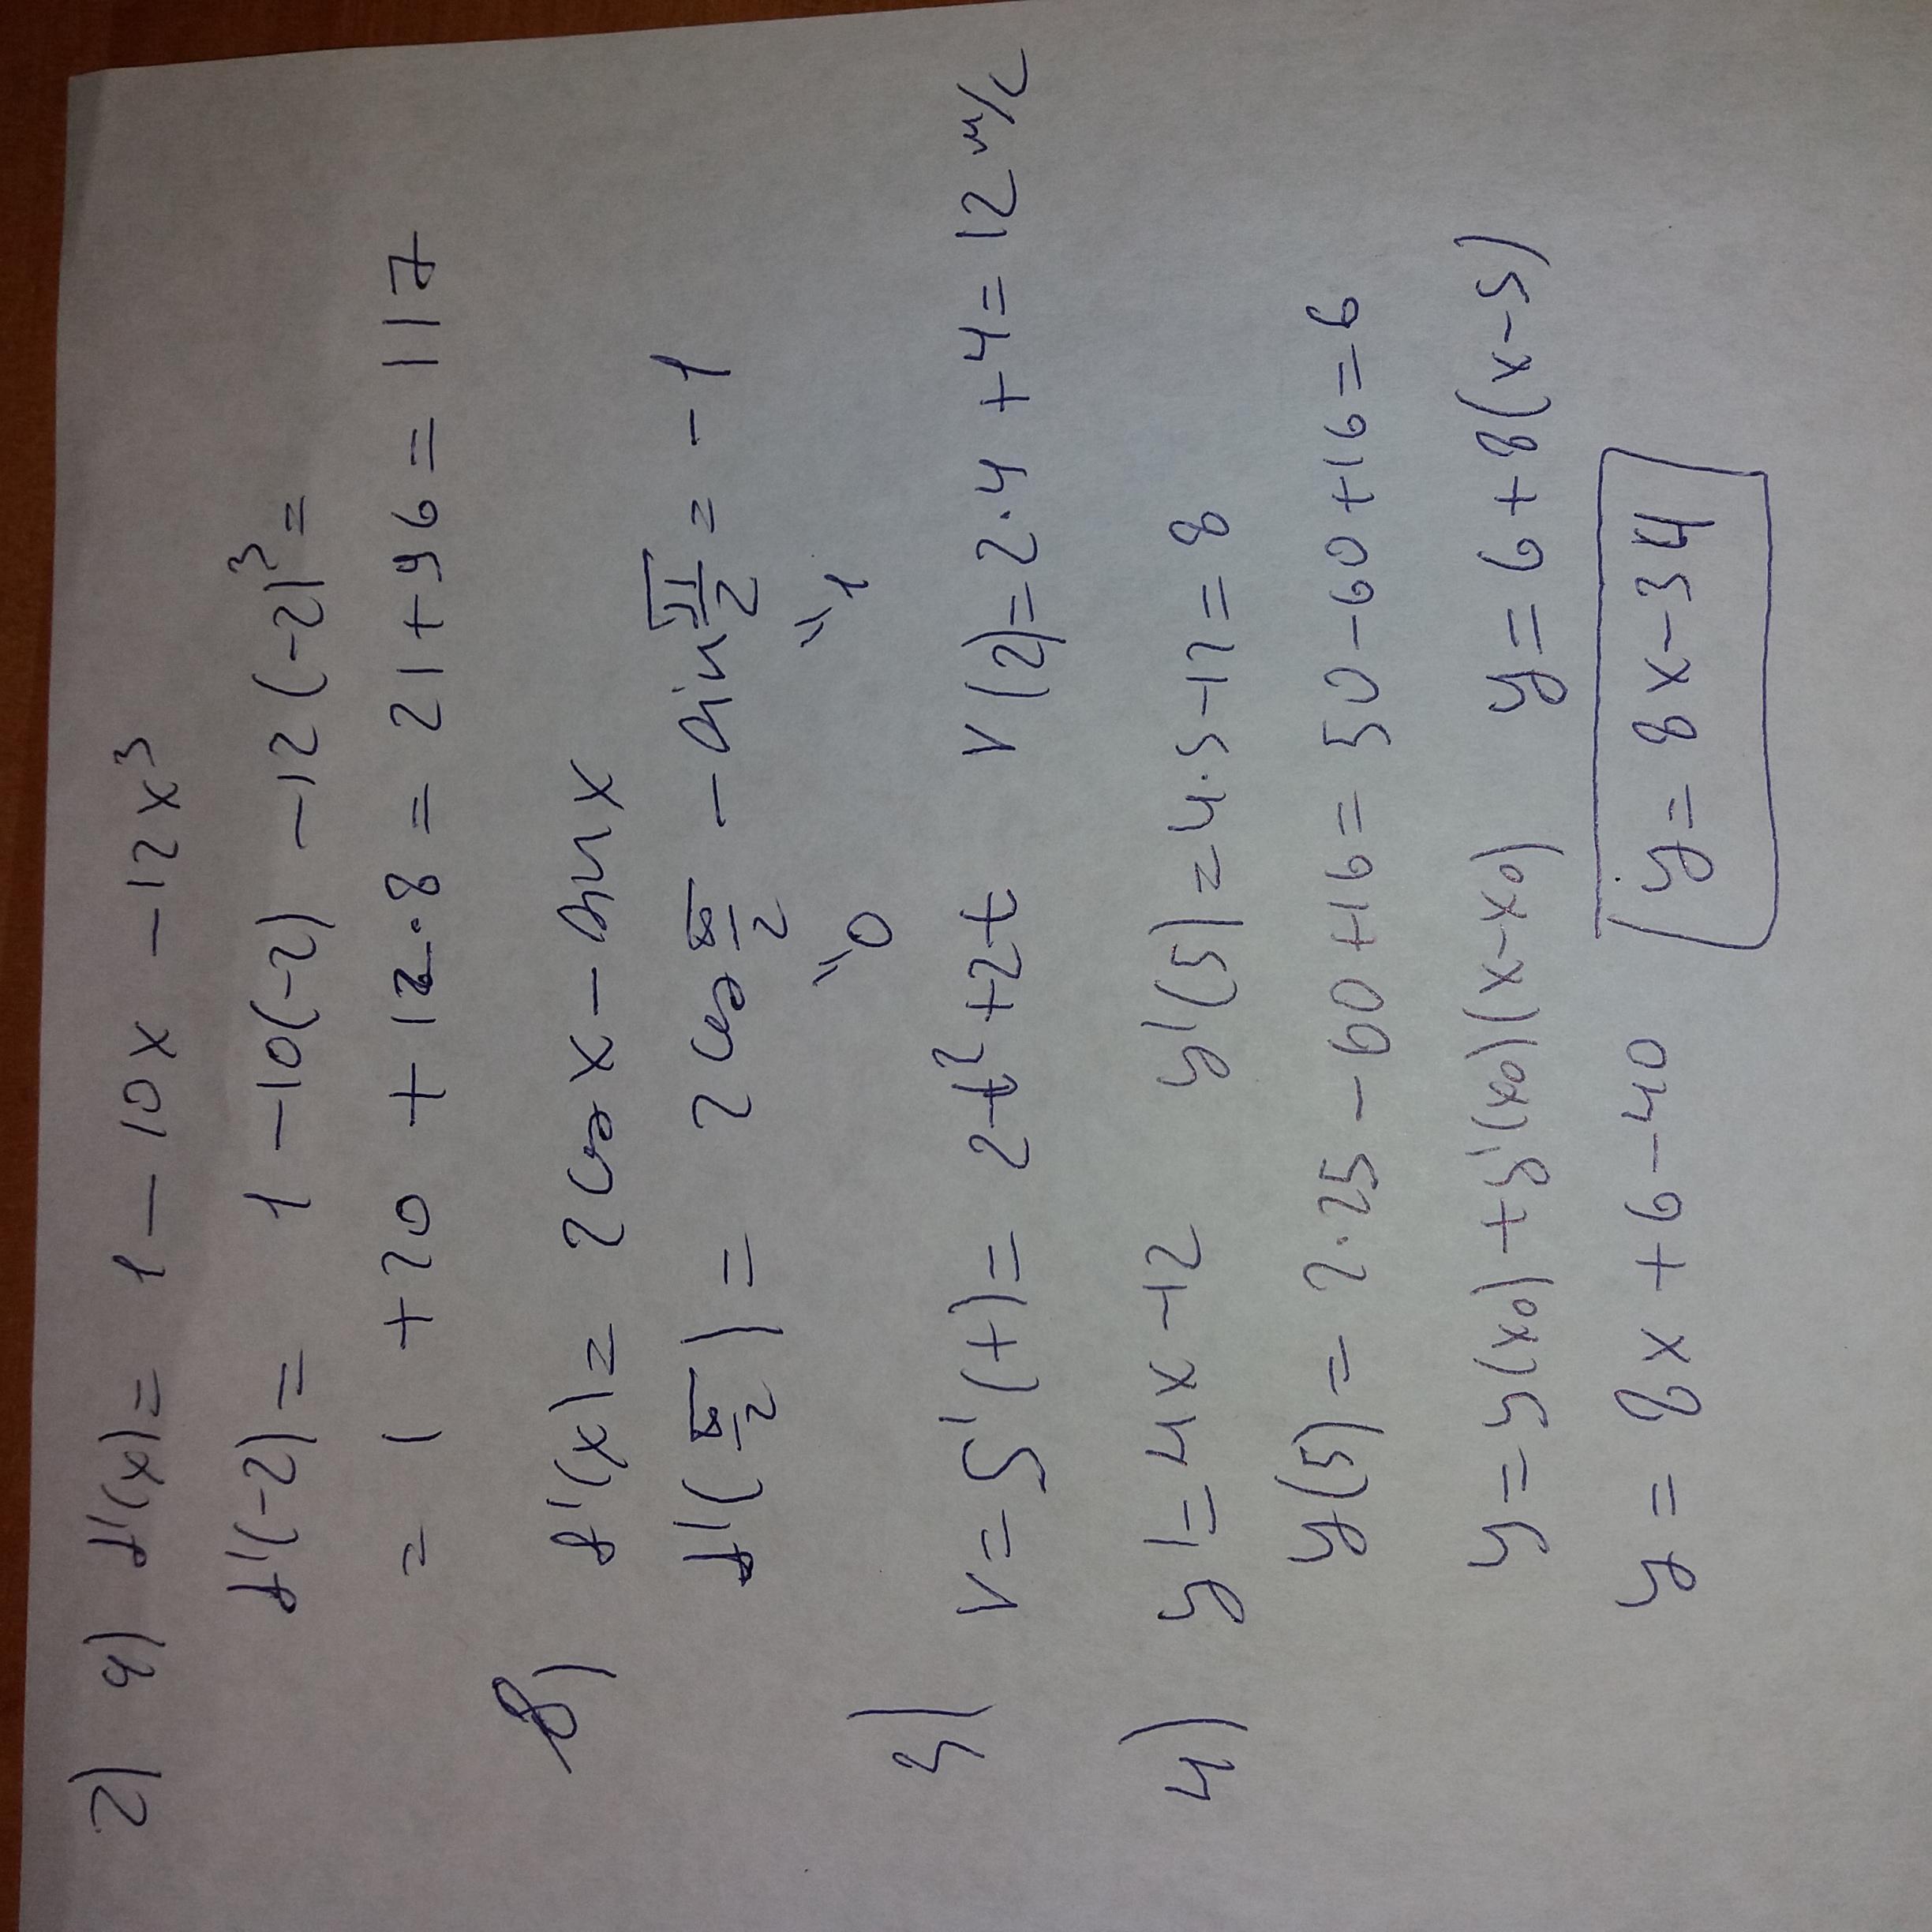 2) а) f'(x) = 1 - 10x - 12x³
f'(-2) = 1 - 10(-2) - 12(-2)³ =
= 1 + 20 + 12·8 = 21 + 96 = 117
б) f'(x) = 2cos x - sin x
f'(π/2) = 2cos π/2 - sin π/2 = -1
"0 "1
3) v = S'(t) = 2t² + 2t v(2) = 2·4 + 4 = 12 м/с
4) y' = 4x - 12 y'(5) = 4·5 - 12 = 8
y(5) = 2·25 - 60 + 16 = 50 - 60 + 16 = 6
y = y(x₀) + y'(x₀)(x - x₀) y = 6 + 8(x - 5)
y = 8x + 6 - 40 y = 8x - 34